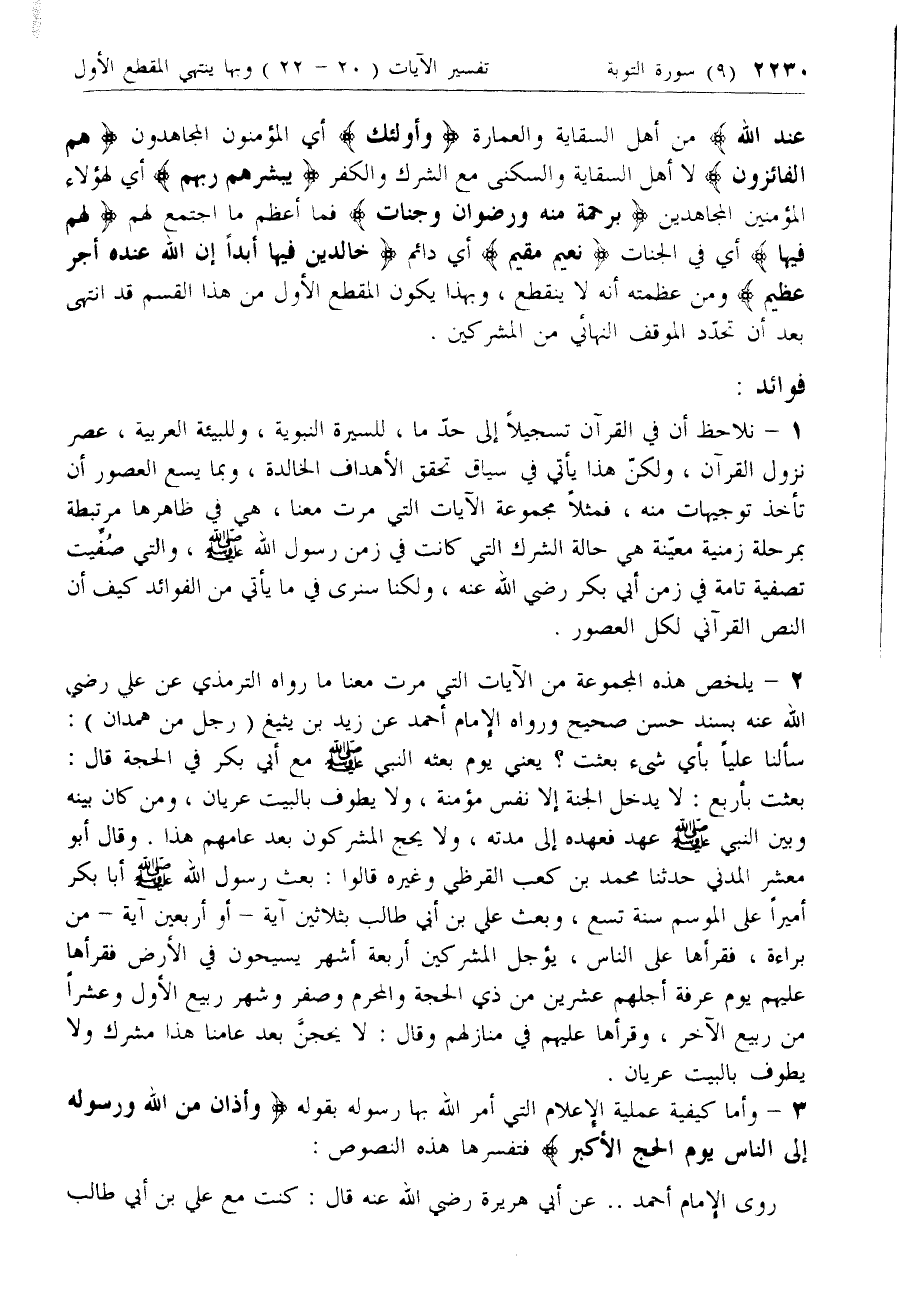 ٢٢٣٠ (٩) سورة التوبة تفسير الآيات ( ٢٠ – ٢٢ ) وبها ينتهي المقطع الأول
عند الله ﴾ من أهل السقاية والعمارة ﴿ وأولئك ﴾ أي المؤمنون المجاهدون ﴿ هم
الفائزون ﴾ لا أهل السقاية والسكنى مع الشرك والكفر ﴿ يبشرهم ربهم ﴾ أي لهؤلاء
المؤمنين المجاهدين ﴿ برحمة منه ورضوان وجنات ﴾ فما أعظم ما اجتمع لهم ﴿ لهم
فيها ﴾ أي في الجنات ﴿ نعيم مقيم ﴾ أي دائم ﴿ خالدين فيها أبداً إن الله عنده أجر
عظيم ﴾ ومن عظمته أنه لا ينقطع ، وبهذا يكون المقطع الأول من هذا القسم قد انتهى
بعد أن تحدّد الموقف النهائي من المشركين .
فوائد :
١ – نلاحظ أن في القرآن تسجيلاً إلى حدّ ما ، للسيرة النبوية ، وللبيئة العربية ، عصر
نزول القرآن ، ولكنّ هذا يأتي في سياق تحقق الأهداف الخالدة ، وبما يسع العصور أن
تأخذ توجيهات منه ، فمثلاً مجموعة الآيات التي مرت معنا ، هي في ظاهرها مرتبطة
بمرحلة زمنية معيّنة هي حالة الشرك التي كانت في زمن رسول الله ﷺ ، والتي صُفِّيت
تصفية تامة في زمن أبي بكر رضي الله عنه ، ولكنا سنرى في ما يأتي من الفوائد كيف أن
النص القرآني لكل العصور .
٢ – يلخص هذه المجموعة من الآيات التي مرت معنا ما رواه الترمذي عن علي رضي
الله عنه بسند حسن صحيح ورواه الإمام أحمد عن زيد بن يثيغ ( رجل من همدان ) :
سألنا علياً بأي شيء بعثت ؟ يعني يوم بعثه النبي ﷺ مع أبي بكر في الحجة قال :
بعثت بأربع : لا يدخل الجنة إلا نفس مؤمنة ، ولا يطوف بالبيت عريان ، ومن كان بينه
وبين النبي ﷺ عهد فعهده إلى مدته ، ولا يحج المشركون بعد عامهم هذا . وقال أبو
معشر المدني حدثنا محمد بن كعب القرظي وغيره قالوا : بعث رسول الله ﷺ أبا بكر
أميراً على الموسم سنة تسع ، وبعث علي بن أبي طالب بثلاثين آية – أو أربعين آية – من
براءة ، فقرأها على الناس ، يؤجل المشركين أربعة أشهر يسيحون في الأرض فقرأها
عليهم يوم عرفة أجلهم عشرين من ذي الحجة والمحرم وصفر وشهر ربيع الأول وعشراً
من ربيع الآخر ، وقرأها عليهم في منازلهم وقال : لا يحجنَّ بعد عامنا هذا مشرك ولا
يطوف بالبيت عريان .
٣ – وأما كيفية عملية الإعلام التي أمر الله بها رسوله بقوله ﴿ وأذان من الله ورسوله
إلى الناس يوم الحج الأكبر ﴾ فتفسرها هذه النصوص :
روى الإمام أحمد .. عن أبي هريرة رضي الله عنه قال : كنت مع علي بن أبي طالب